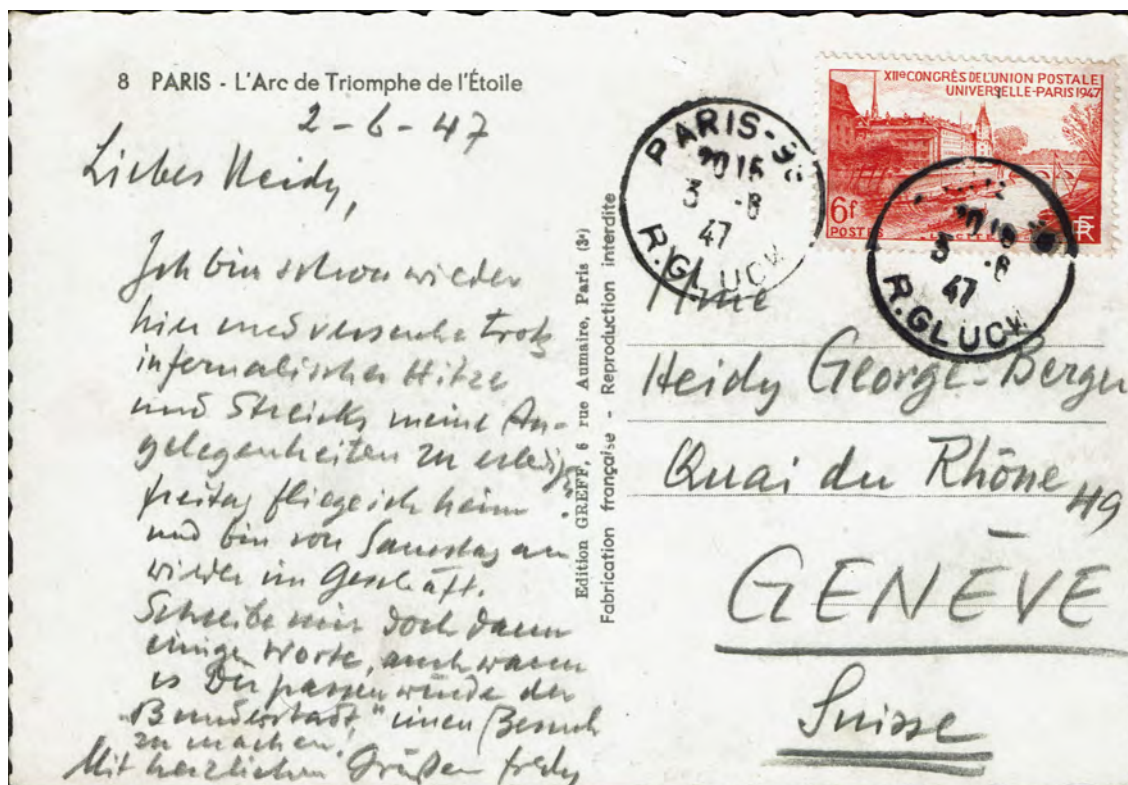 8 PARIS - L'Arc de Triomphe de l'Étoile
2-6-47
Liebes Heidy,
Ich bin schon wieder
hier und versuche trotz
infernalischer Hitze
und Streicks meine An-
gelegenheiten zu erledigen.
Freitag fliege ich heim
und bin von Samstag an
wieder im Geschäft.
Schreibe mir doch dann
einige Worte, auch wann
es Dir passen würde der
"Bundesstadt" einen Besuch
zu machen.
Mit herzlichen Grüßen fredy
Edition GREFF, 6 rue Aumaire, Paris (3e)
Fabrication française - Reproduction interdite
XIIe CONGRÈS DE L'UNION POSTALE
UNIVERSELLE-PARIS 1947
6f
POSTES
RF
PARIS-
3 -6
47
R. GLUCK
3 -6
47
R. GLUCK
Mme
Heidy George-Berger
Quai du Rhône 49
GENÈVE
Suisse